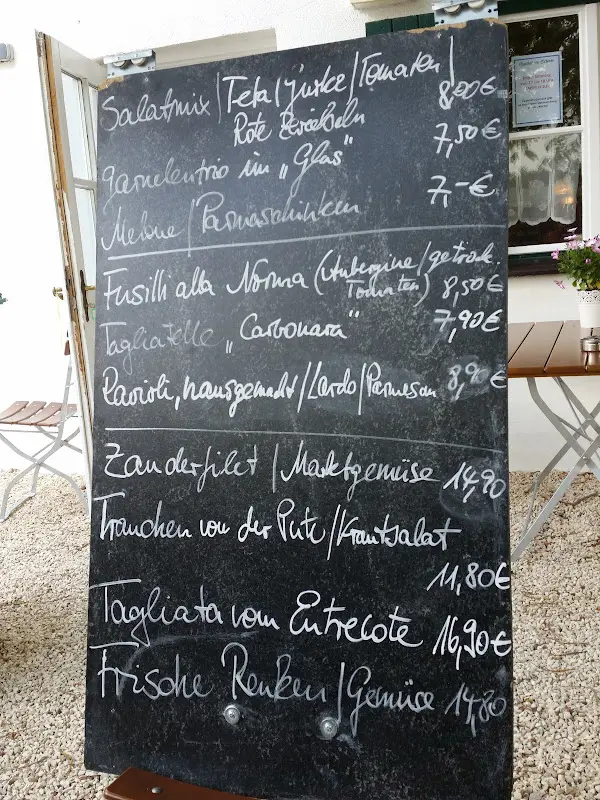 Salatmix / Feta / Gurke / Tomaten /
Rote Zwiebeln 8,00€
Garnelentrio im „Glas“ 7,50€
Melone / Parmaschinken 7,-€
Fusilli alla Norma (Aubergine / getrock.
Tomaten) 8,50€
Tagliatelle „Carbonara“ 7,90€
Ravioli, hausgemacht / Lardo / Parmesan 8,90€
Zanderfilet / Marktgemüse 14,90
Tranchen von der Pute / Krautsalat
11,80€
Tagliata vom Entrecote 16,90€
Frische Renken / Gemüse 14,80